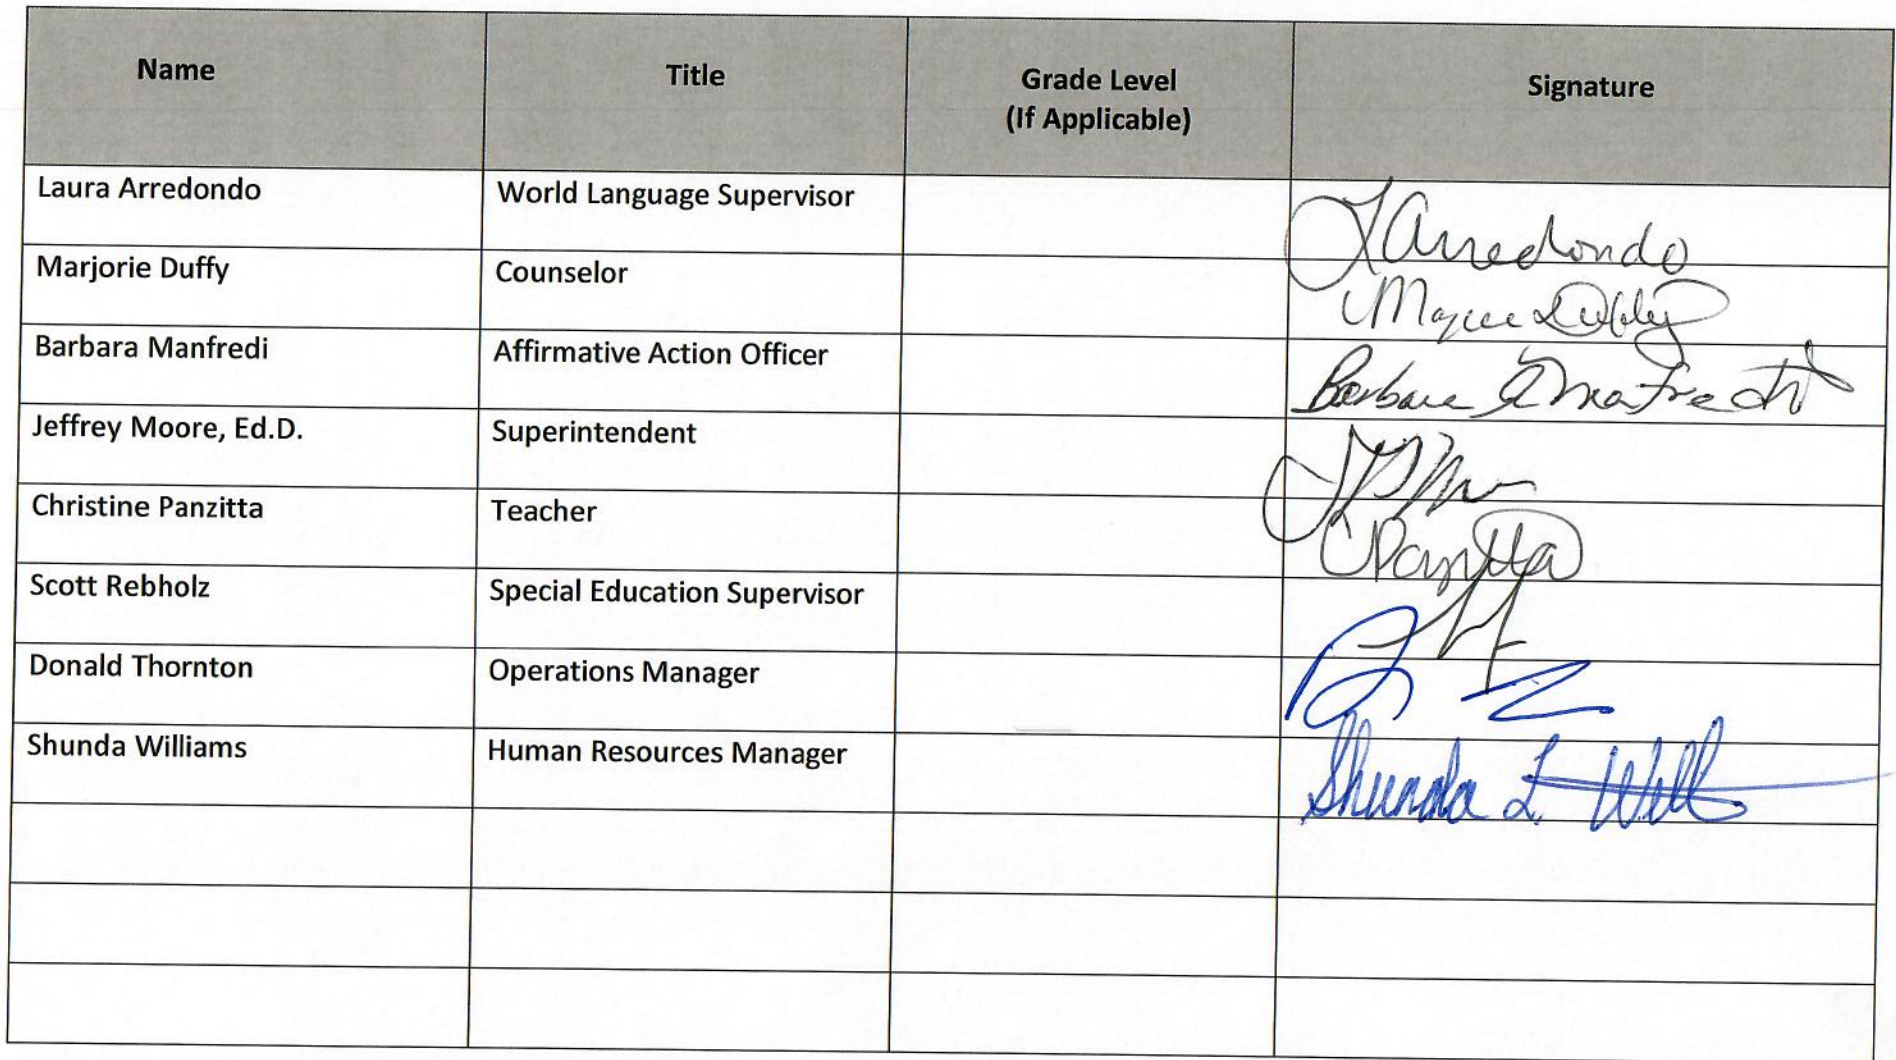 Name Title Grade Level (If Applicable) Signature
Laura Arredondo World Language Supervisor LArredondo
Marjorie Duffy Counselor
Barbara Manfredi Affirmative Action Officer Barbara Manfredi
Jeffrey Moore, Ed.D. Superintendent
Christine Panzitta Teacher CPanzitta
Scott Rebholz Special Education Supervisor
Donald Thornton Operations Manager
Shunda Williams Human Resources Manager Shunda L. Will